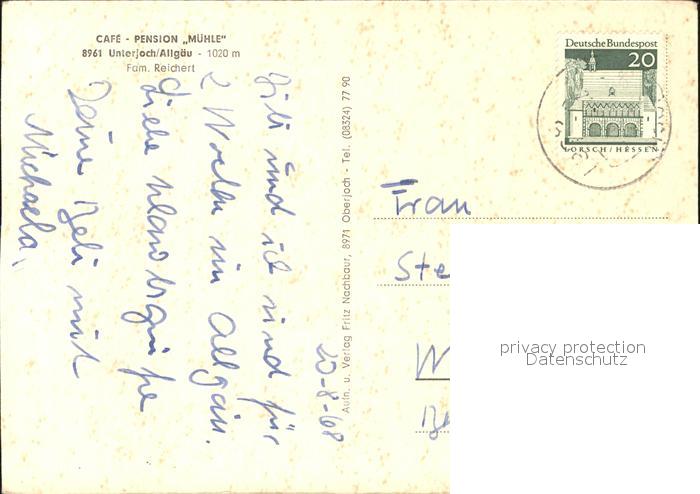 CAFÉ - PENSION „MÜHLE"
8961 Unterjoch/Allgäu - 1020 m
Fam. Reichert
20-8-68
und ich sind für
2 Wochen im Allgäu.
Liebe
Deine Beli mit
Michaela.
Aufn. u. Verlag Fritz Nachbaur, 8971 Oberjoch - Tel. (08324) 77 90
Deutsche Bundespost
20
LORSCH/HESSEN
Frau
Ste
W
privacy protection
Datenschutz